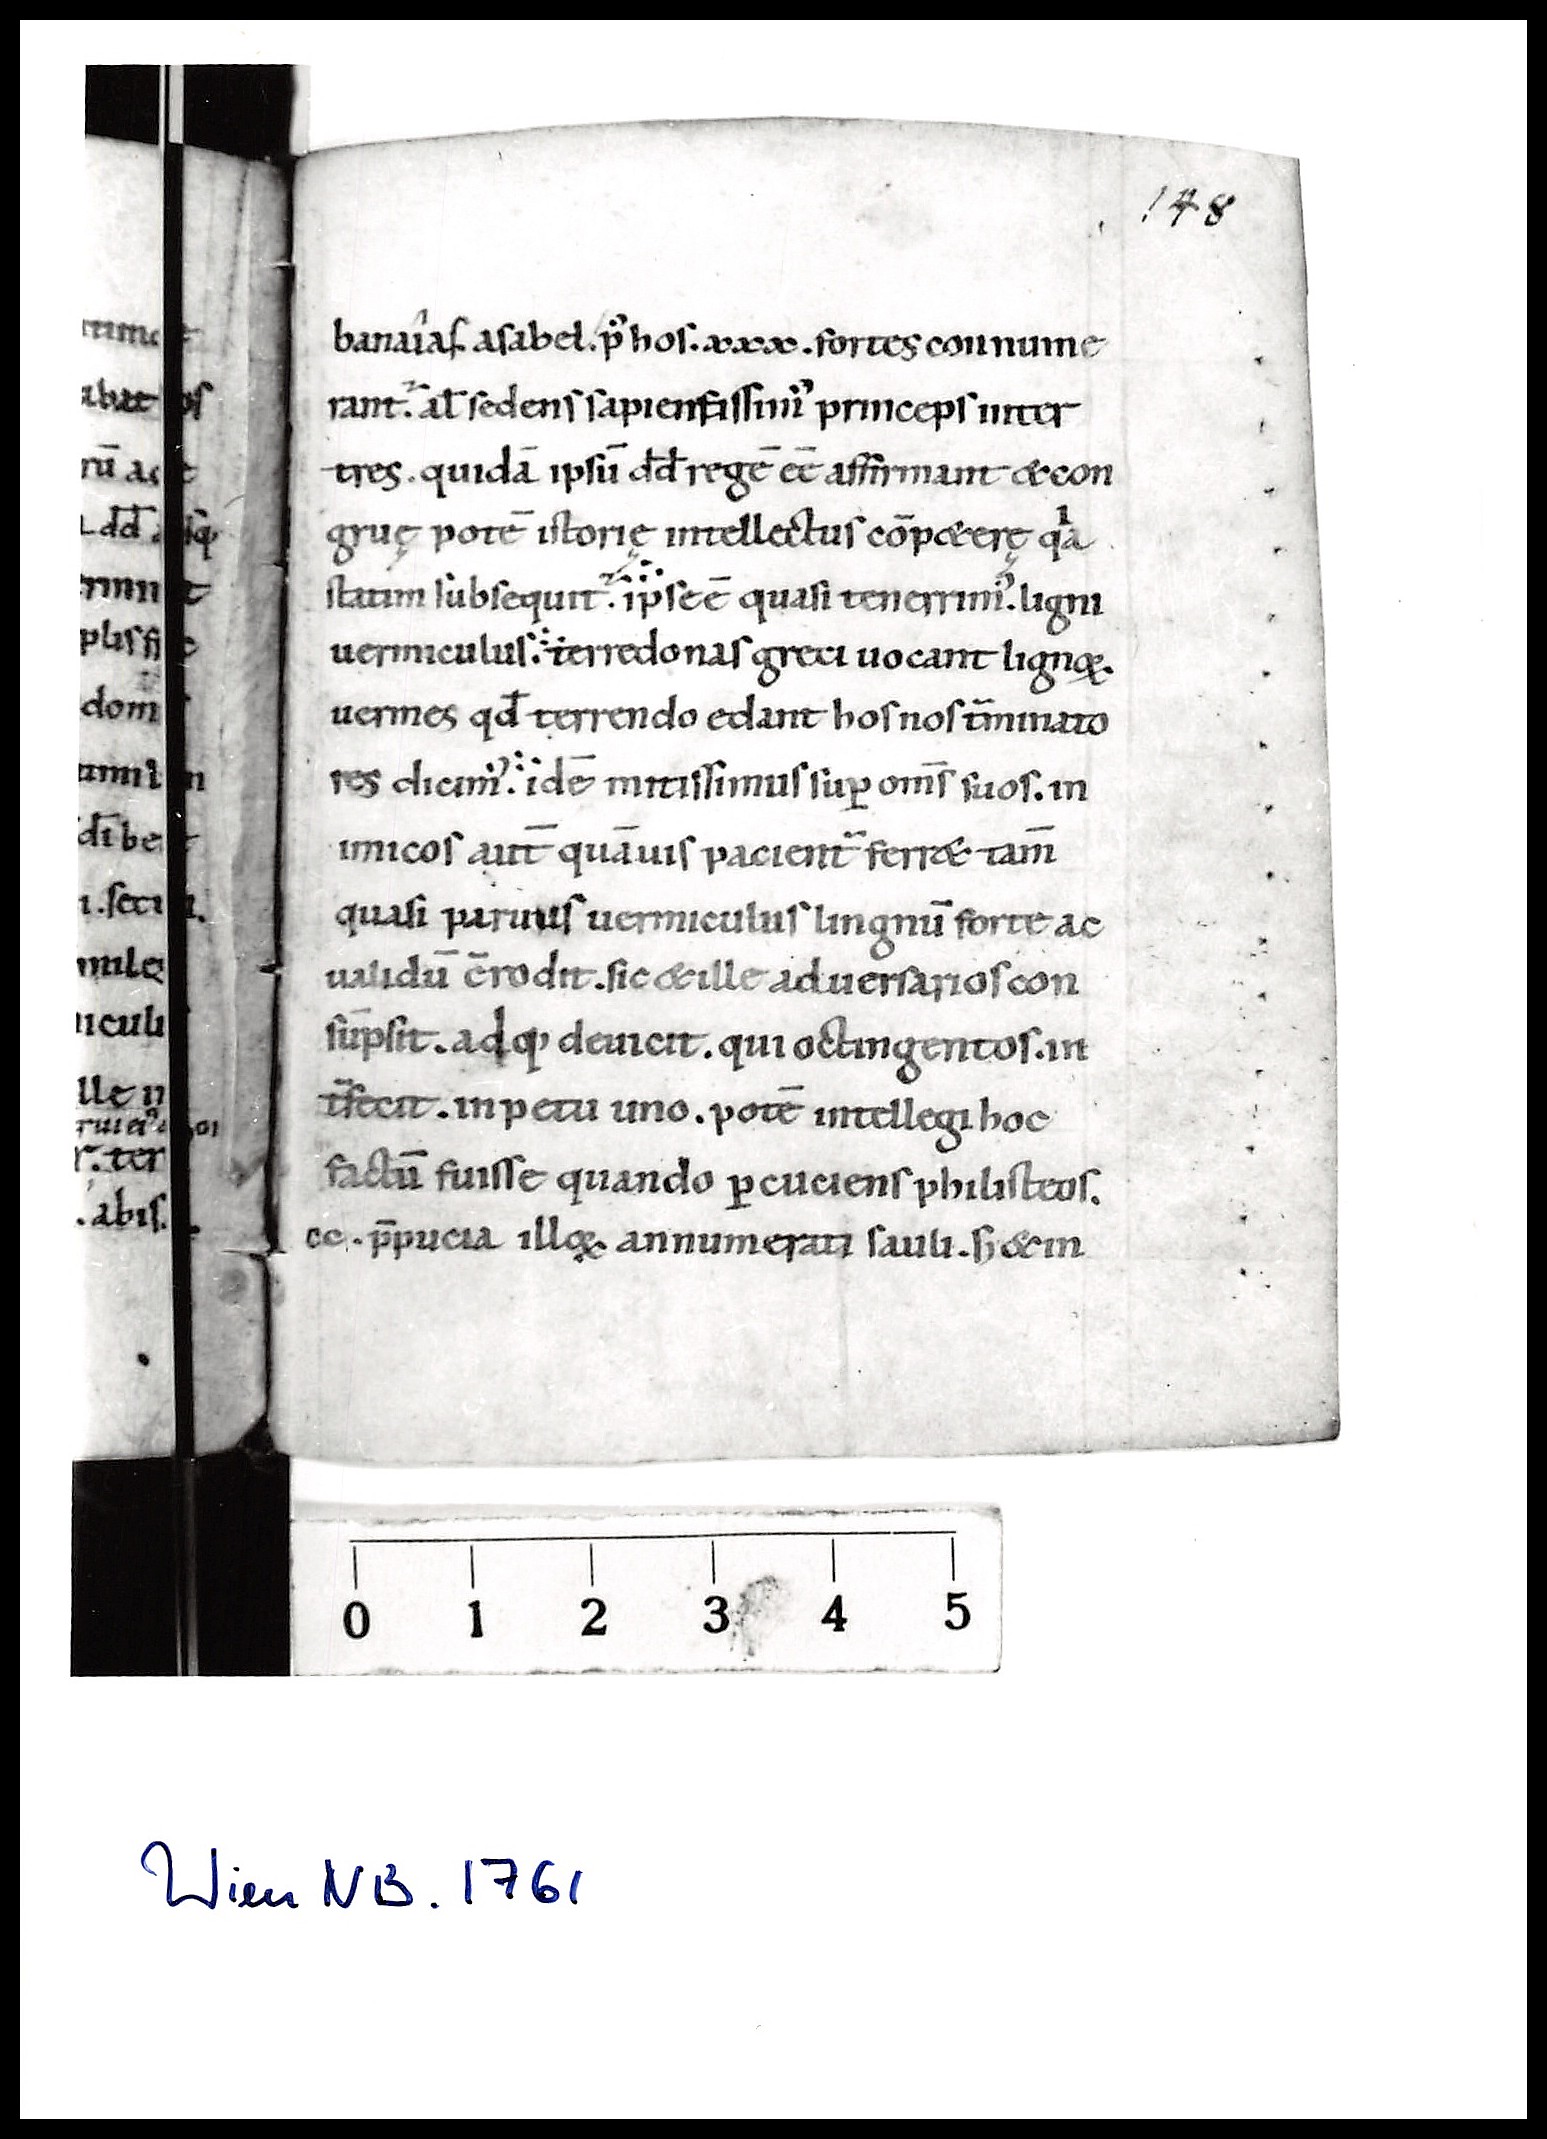 148
banaiaſ aſabel. p̄ hoſ. xxx. fortes connume
rant. al̄ ſedenſ ſapientiſſim᾽ princepſ inter
tres. quidā ipſū dd̄ regē eē affirmant & con
gruę potē iſtorię intellectuſ cōp&erę qa
ſtatim ſubſequit᷑. ipſe ē quaſi tenerrim᾽. ligni
uermiculuſ. terredonaſ greci uocant lignoꝝ.
uermes qd̄ terrendo edant hoſ noſ t̄minato
res dicim᾽. idē mitiſſimuſ ſuꝑ om̄ſ ſuoſ. in
imicoſ aut̄ quāuiſ pacient̄ ferr& tam̄
quaſi paruuſ uermiculuſ lingnū forte ac
ualidū c̄rodit. ſic & ille aduerſarioſ con
ſūpſit. adq; deuicit. qui octingentoſ. in
t̄fecit. inpetu uno. potē intellegi hoc
factū fuiſſe quando ꝑcucienſ philiſteoſ.
cc. p̄pucia illoꝝ annumerati ſauli. ſ; & in
abat oſ
rū ac
dd̄
dom
culi
ter
. abiſ.
0 1 2 3 4 5
Wien NB. 1761